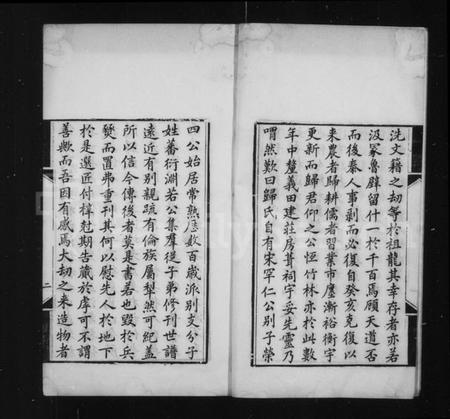 洗文籍之劫等於祖龍其幸存者亦若
汲冢魯壁留什一於千百焉顧天道否
而後秦人事剥而必復自癸亥克復以
來農者歸耕儒者習業市廛漸裕衡宇
更新而歸君仰之公恆竹林亦於此數
年中釐義田建莊房葺祠宇妥先靈乃
喟然歎曰歸氏自有宋罕仁公别子榮
四公始居常熟歷數百歲派别支分子
姓蕃衍淵若公集羣從子弟修刊世譜
遠近有别親疏有倫族屬犁然可紀蓋
所以信今傳後者莫是書若也毁於兵
燹而置弗重刊其何以慰先人於地下
於是選匠付梓尅期告蕆於虖可不謂
善歟而吾因有感焉大劫之來造物者